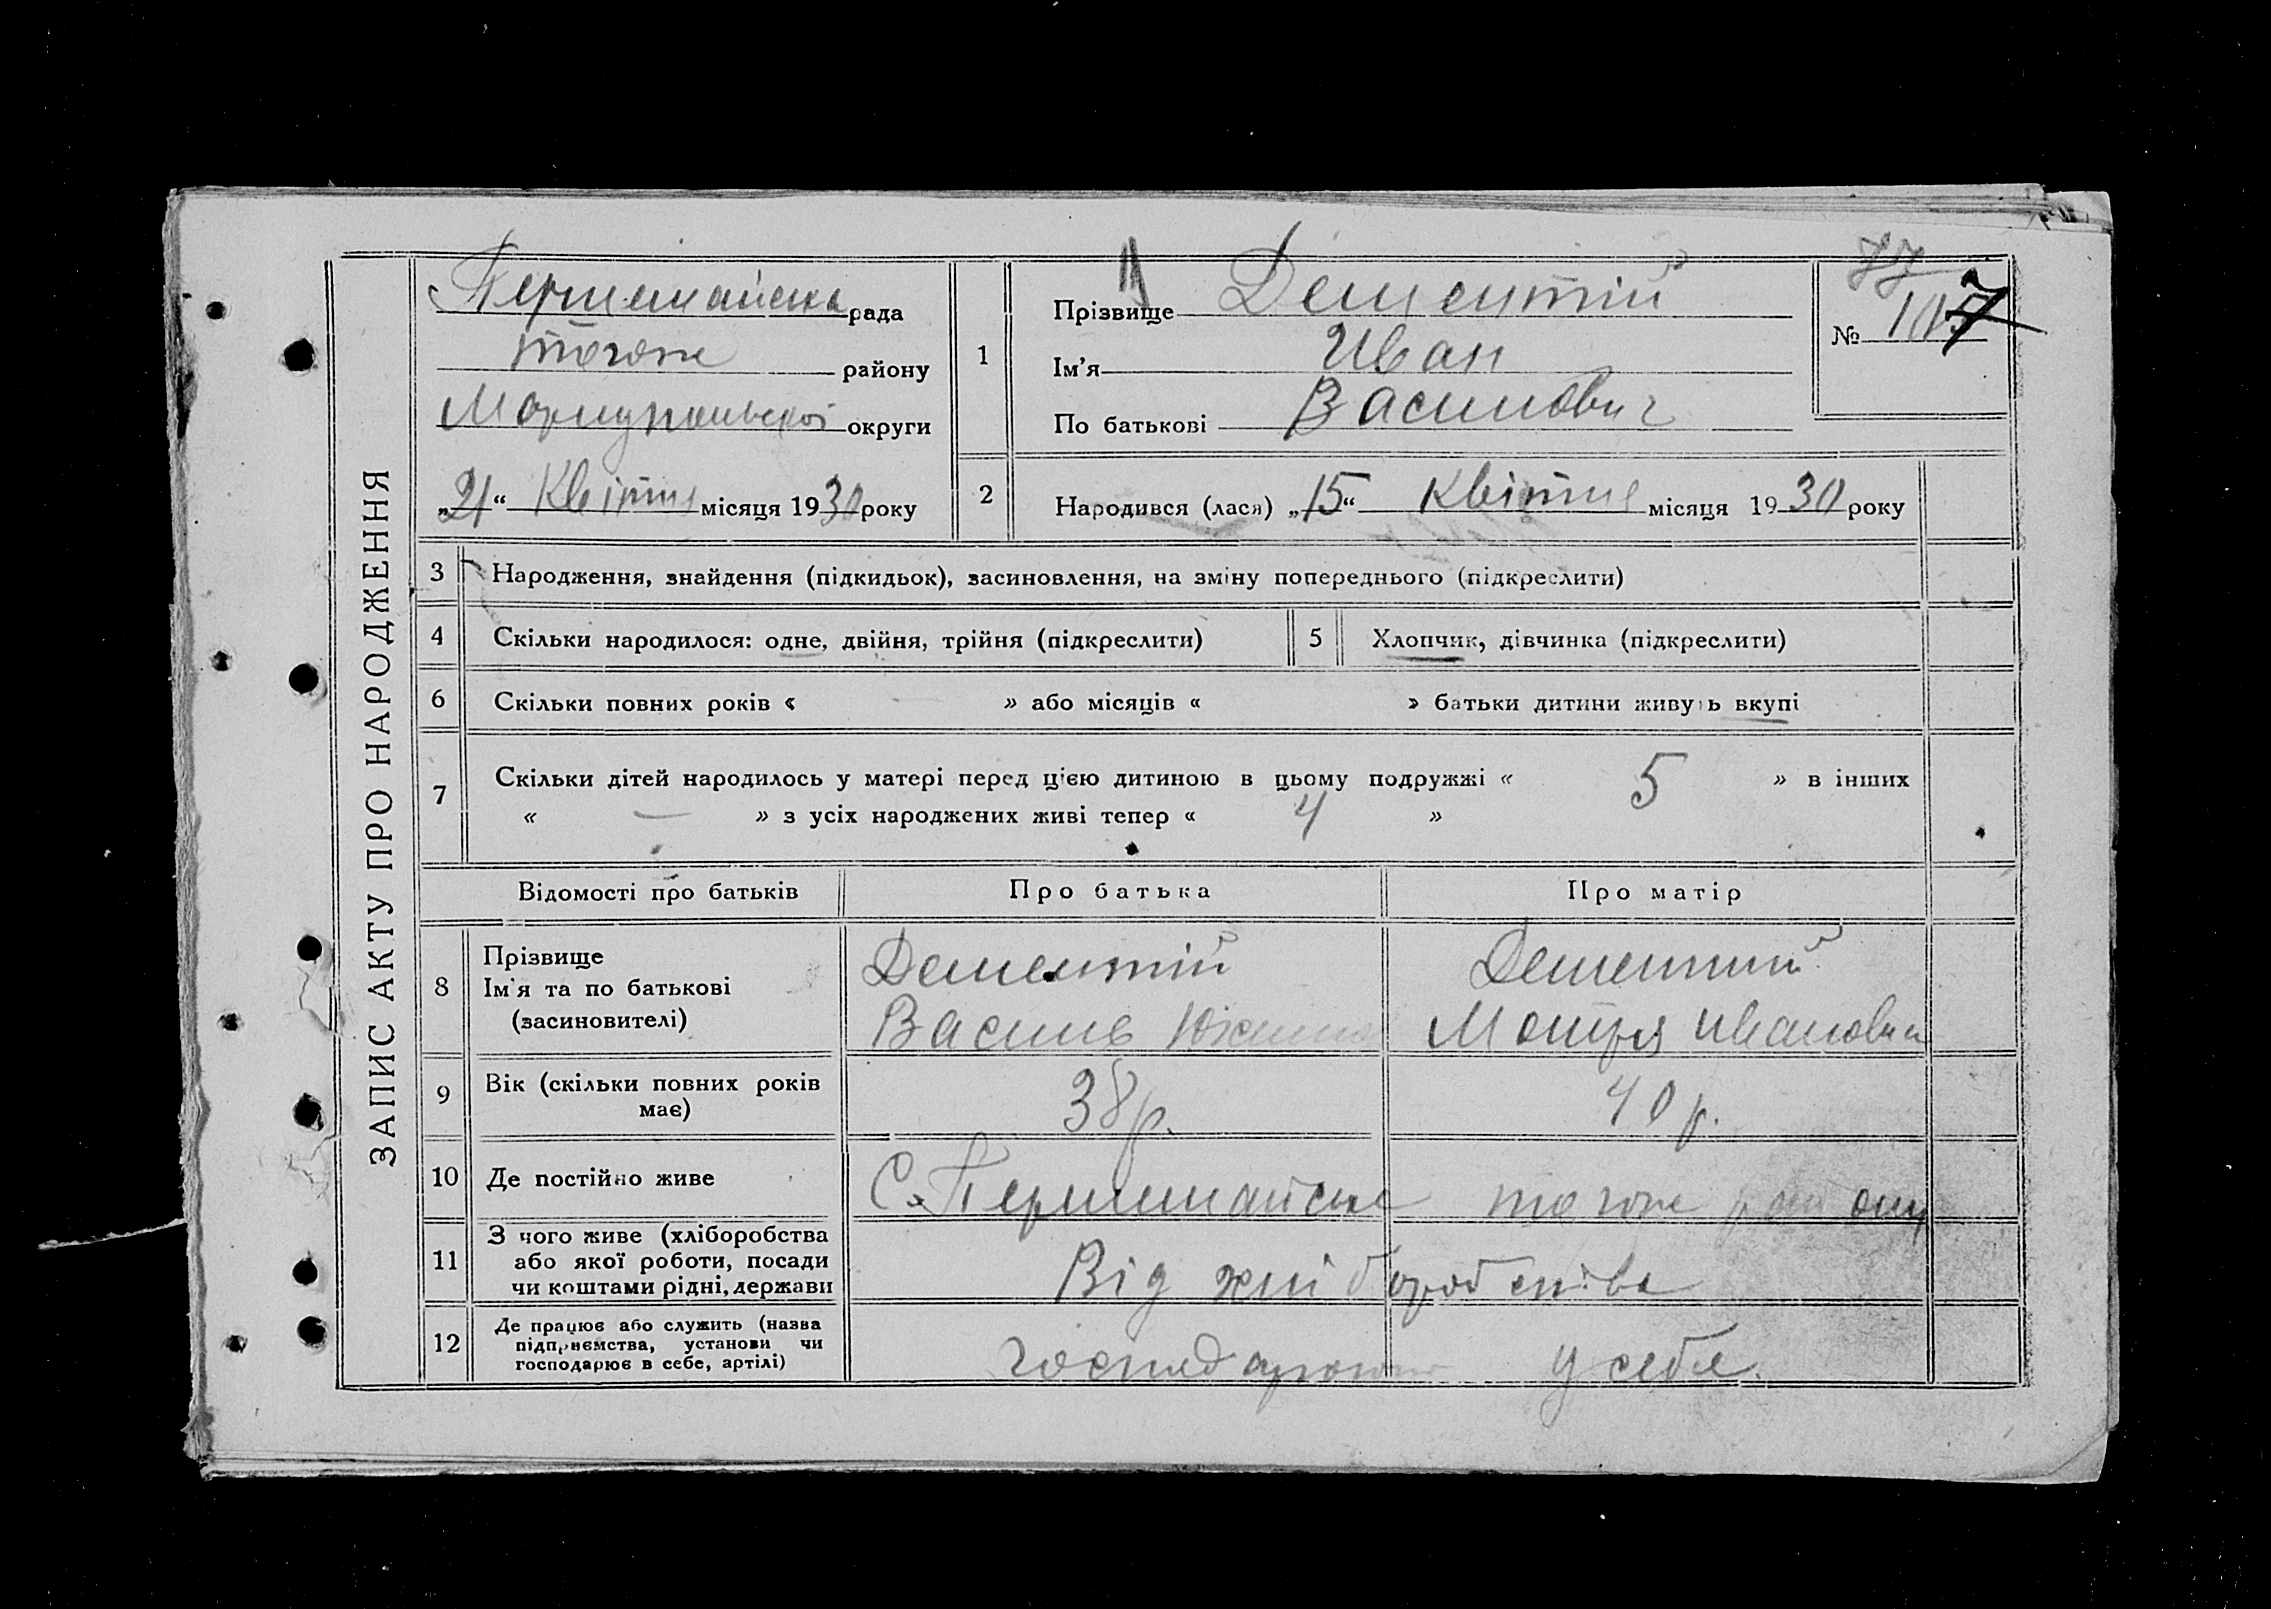 ЗАПИС АКТУ ПРО НАРОДЖЕННЯ
Першемайська рада
тогоже району
Маріупольської округи
„21“ Квітня місяця 1930 року
1
Прізвище Дементій
Ім'я Иван
По батькові Василович
77
№ 107
2
Народився (лася) „15“ Квітня місяця 1930 року
3 Народження, знайдення (підкидьок), засиновлення, на зміну попереднього (підкреслити)
4 Скільки народилося: одне, двійня, трійня (підкреслити)
5 Хлопчик, дівчинка (підкреслити)
6 Скільки повних років « — » або місяців « » батьки дитини живуть вкупі
7 Скільки дітей народилось у матері перед цією дитиною в цьому подружжі « 5 » в інших
« — » з усіх народжених живі тепер « 4 »
Відомості про батьків Про батька Про матір
8 Прізвище
Ім'я та по батькові
(засиновителі)
Дементій
Василь
Дементий
Мотря Ивановна
9 Вік (скільки повних років
має)
38 р. 40 р.
10 Де постійно живе С. Першемайське тогоже району
11 З чого живе (хліборобства
або якої роботи, посади
чи коштами рідні, держави
Від хліборобства
12 Де працює або служить (назва
підприємства, установи чи
господарює в себе, артілі)
у себе.